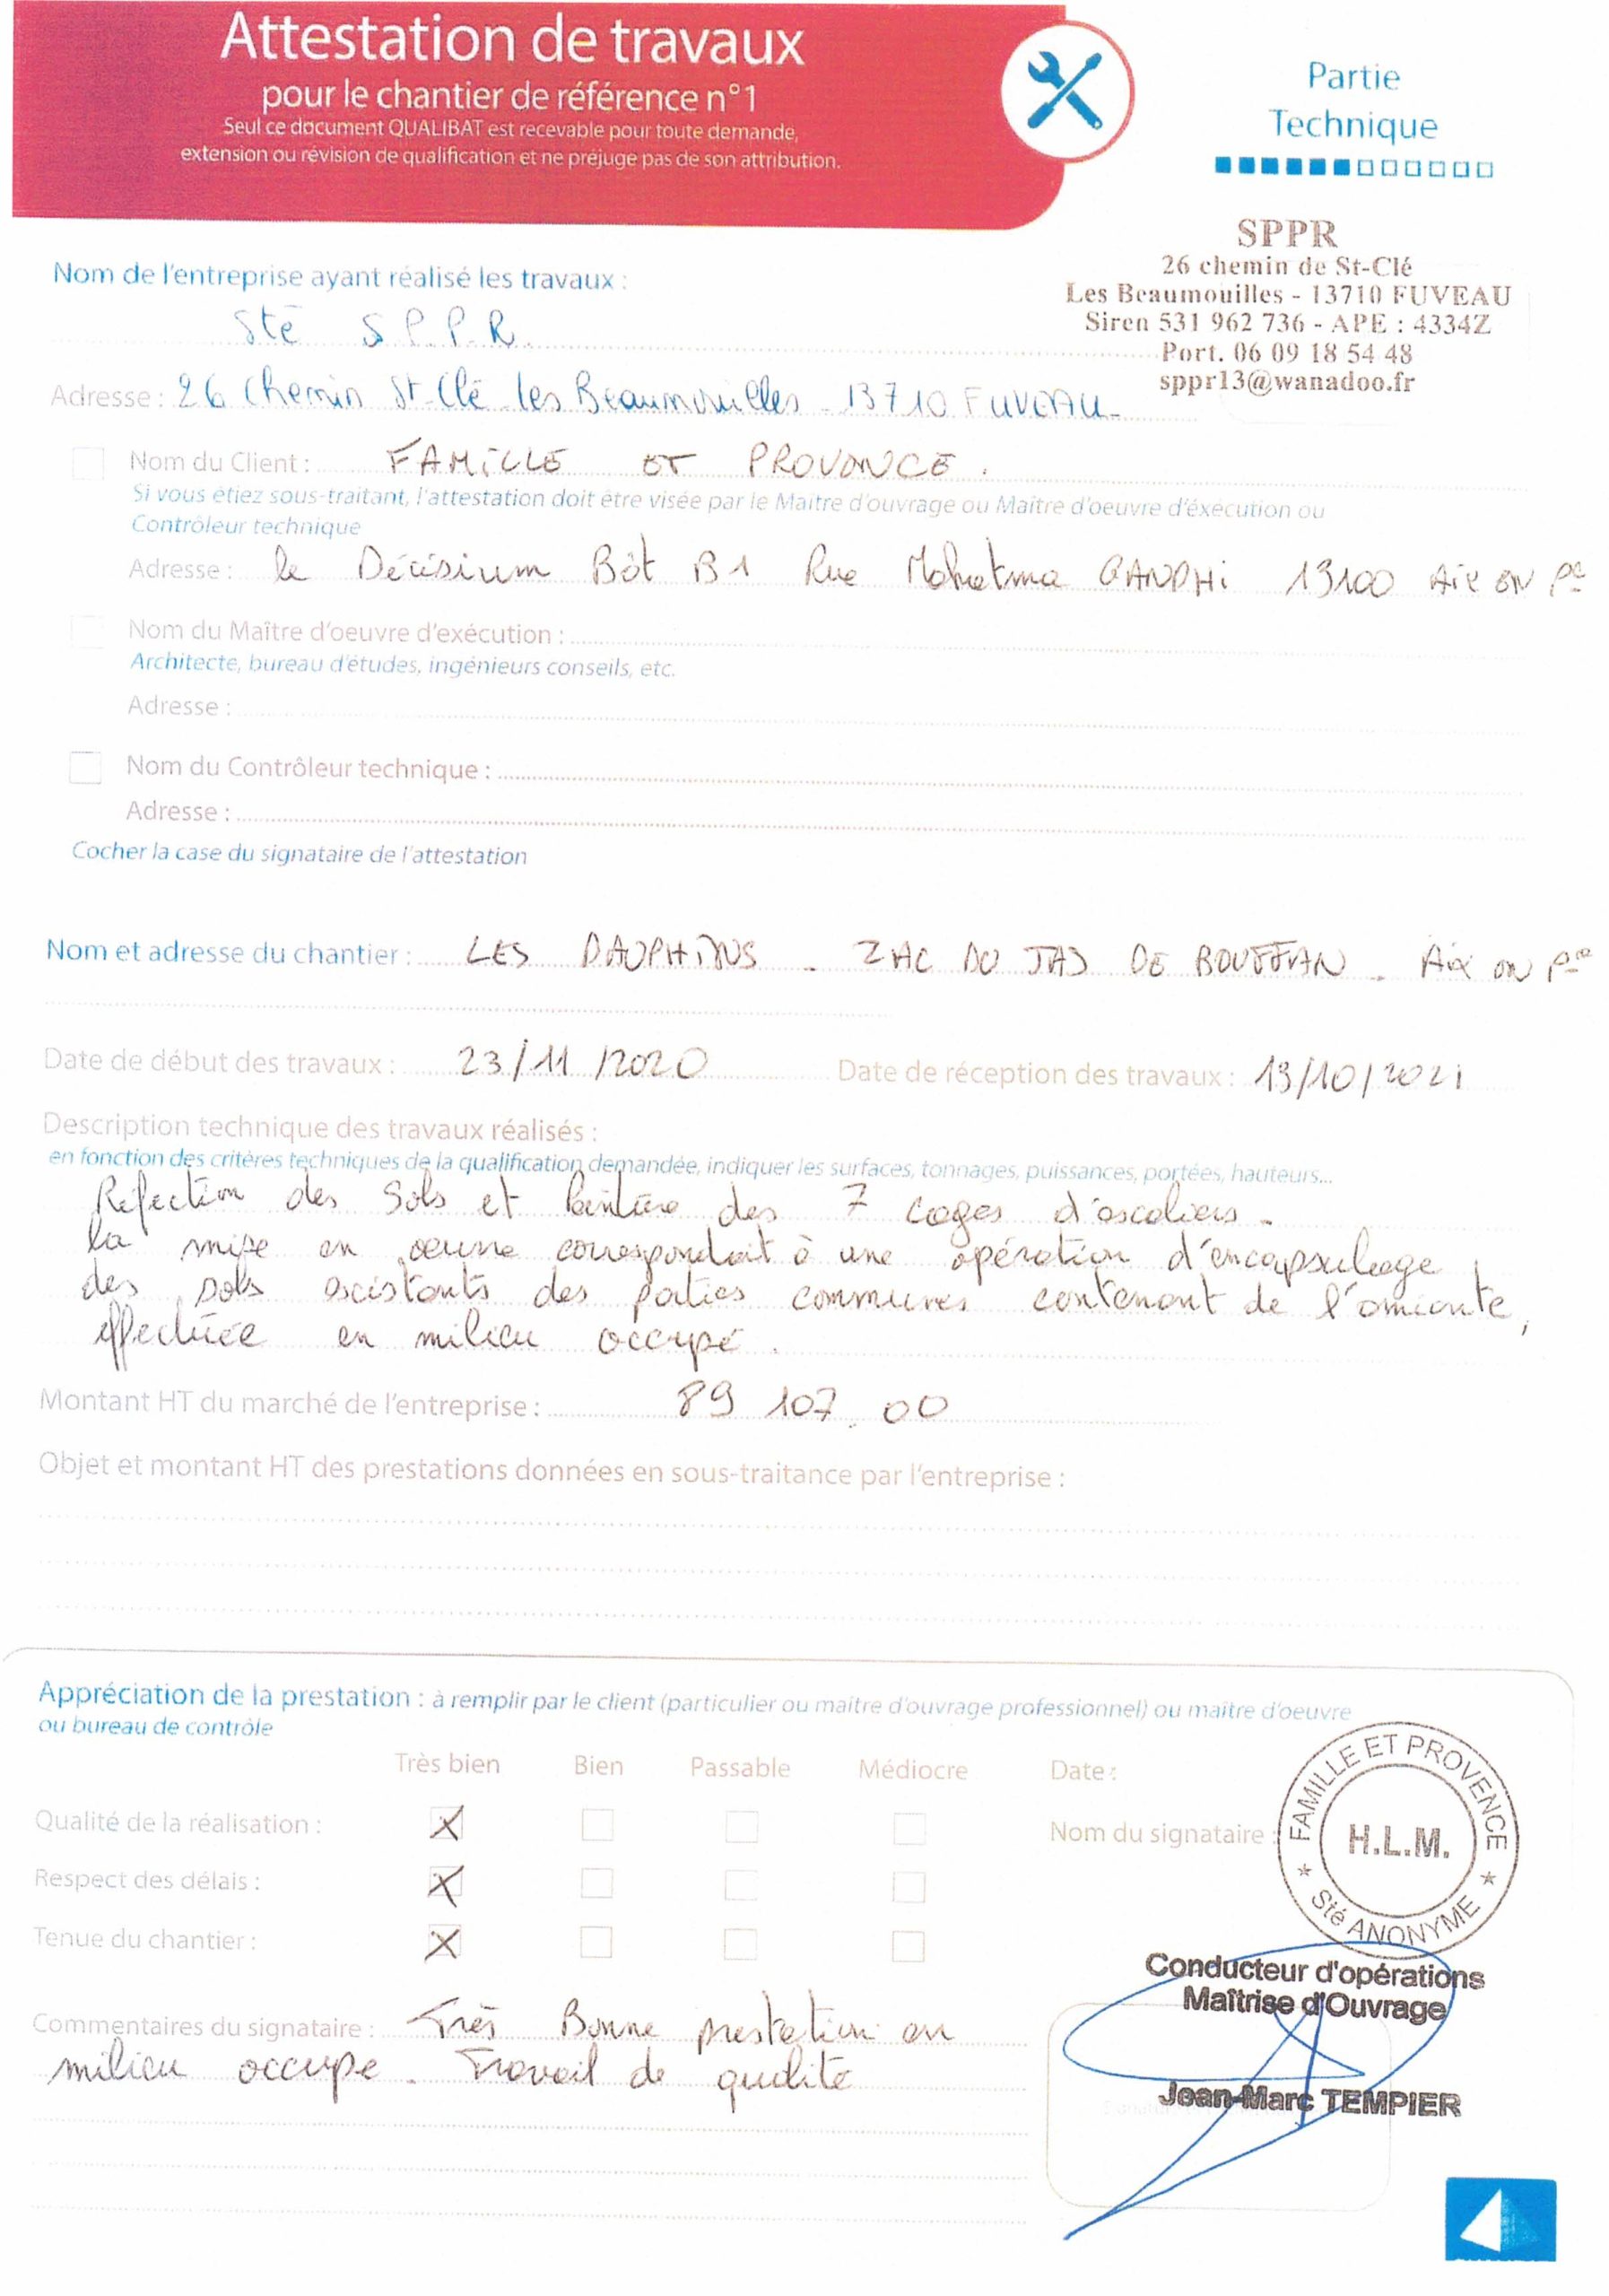 Attestation de travaux
pour le chantier de référence n°1
Seul ce document QUALIBAT est recevable pour toute demande,
extension ou révision de qualification et ne préjuge pas de son attribution.
Partie
Technique
SPPR
26 chemin de St-Clé
Les Beaumouilles - 13710 FUVEAU
Siren 531 962 736 - APE : 4334Z
Port. 06 09 18 54 48
sppr13@wanadoo.fr
Nom de l'entreprise ayant réalisé les travaux :
Sté S.P.P.R.
Adresse : 26 Chemin St-Clé les Beaumouilles - 13710 FUVEAU-
Nom du Client : FAMILLE ET PROVENCE.
Si vous étiez sous-traitant, l'attestation doit être visée par le Maître d'ouvrage ou Maître d'oeuvre d'éxécution ou
Contrôleur technique
Adresse : le Décisium Bât B1 Rue Mahatma GANDHI 13100 AIX EN Pce
Nom du Maître d'oeuvre d'exécution :
Architecte, bureau d'études, ingénieurs conseils, etc.
Adresse :
Nom du Contrôleur technique :
Adresse :
Cocher la case du signataire de l'attestation
Nom et adresse du chantier : LES DAUPHINS - ZAC DU JAS DE BOUFFAN - Aix en Pce
Date de début des travaux : 23/11/2020 Date de réception des travaux : 13/10/2021
Description technique des travaux réalisés :
en fonction des critères techniques de la qualification demandée, indiquer les surfaces, tonnages, puissances, portées, hauteurs...
Réfection des Sols et Peinture des 7 cages d'escaliers.
la mise en oeuvre correspondait à une opération d'encapsulage
des sols existants des parties communes contenant de l'amiante,
effectuée en milieu occupé.
Montant HT du marché de l'entreprise : 89 107.00
Objet et montant HT des prestations données en sous-traitance par l'entreprise :
Appréciation de la prestation : à remplir par le client (particulier ou maître d'ouvrage professionnel) ou maître d'oeuvre
ou bureau de contrôle
Très bien Bien Passable Médiocre Date :
Qualité de la réalisation : X
Nom du signataire :
Respect des délais : X
Tenue du chantier : X
FAMILLE ET PROVENCE
H.L.M.
* Sté ANONYME *
Conducteur d'opérations
Maîtrise d'Ouvrage
Jean-Marc TEMPIER
Commentaires du signataire : Très Bonne prestation en
milieu occupé. Travail de qualité